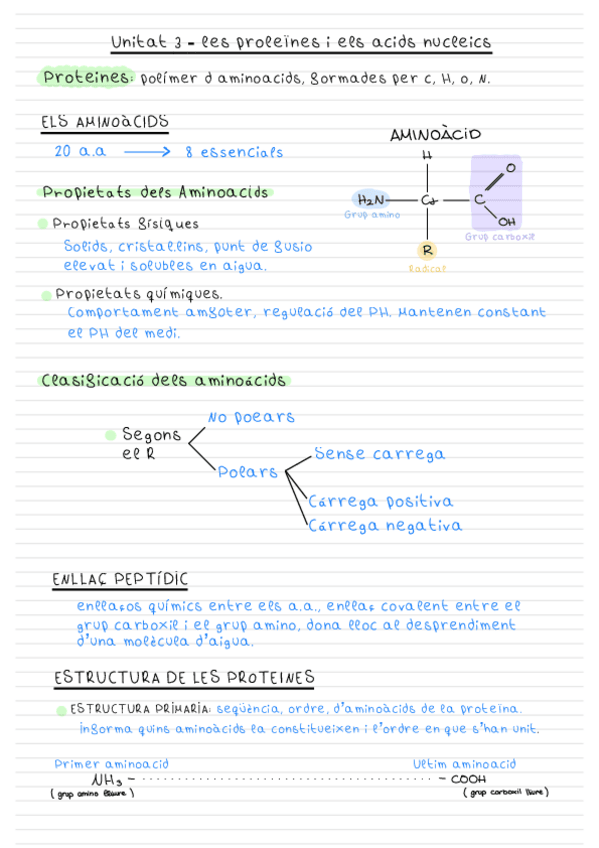 Unitat 3 - les proteïnes i els acids nucleics
Proteines: polímer d aminoacids, formades per C, H, O, N.
ELS AMINOÀCIDS
20 a.a → 8 essencials
AMINOÀCID
H
O
H₂N
Cα
C
OH
Grup amino
Grup carboxil
R
Radical
Propietats dels Aminoacids
Propietats físiques
Solids, cristallins, punt de fusio
elevat i solubles en aigua.
Propietats químiques.
Comportament amfoter, regulació del PH. Mantenen constant
el PH del medi.
Clasificació dels aminoàcids
Segons
el R
No polars
Polars
Sense carrega
Càrrega positiva
Càrrega negativa
ENLLAÇ PEPTÍDIC
enllaços químics entre els a.a., enllaç covalent entre el
grup carboxil i el grup amino, dona lloc al despreniment
d'una molècula d'aigua.
ESTRUCTURA DE LES PROTEINES
ESTRUCTURA PRIMARIA: seqüència, ordre, d'aminoàcids de la proteïna.
informa quins aminoàcids la constitueixen i l'ordre en que s'han unit.
Primer aminoacid
Ultim aminoacid
NH₃ - - COOH
(grup amino lliure)
(grup carboxil lliure)